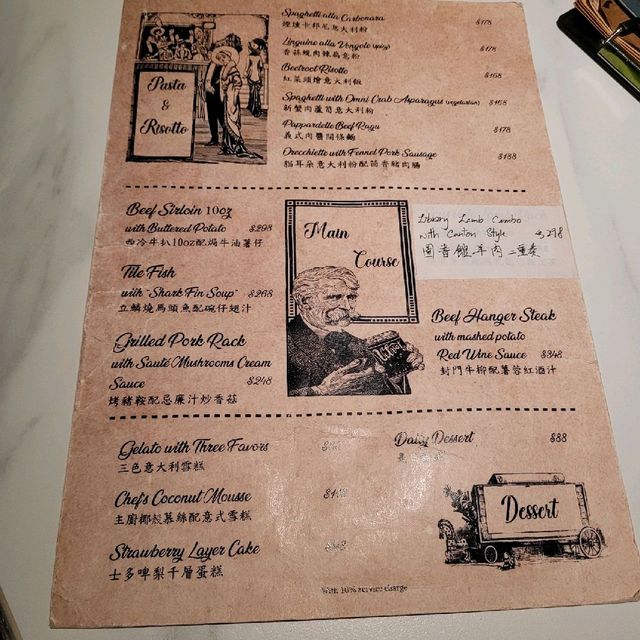 Pasta
&
Risotto
Spaghetti alla Carbonara $178
煙燻卡邦尼意大利粉
Linguine alla Vongole (spicy) $178
Beetroot Risotto $168
紅菜頭燴意大利飯
Spaghetti with Omni Crab Asparagus (vegetarian) $168
新蟹肉蘆筍意大利粉
Pappardelle Beef Ragu $178
義式肉醬闊條麵
Orecchiette with Fennel Pork Sausage $188
貓耳朵意大利粉配茴香豬肉腸
Beef Sirloin 10oz
with Buttered Potato $298
西冷牛扒10oz配焗牛油薯仔
Tile Fish
with "Shark Fin Soup" $268
立鱗燒馬頭魚配碗仔翅汁
Grilled Pork Rack
with Sauté Mushrooms Cream
Sauce $248
烤豬鞍配忌廉汁炒香菇
Main
Course
Library Lamb Combo
with Canton Style $298
圖書館羊肉二重奏
Beef Hanger Steak
with mashed potato
Red Wine Sauce $348
封門牛柳配薯蓉紅酒汁
Gelato with Three Favors
三色意大利雪糕
Chef's Coconut Mousse
主廚椰殼慕絲配意式雪糕
Strawberry Layer Cake
士多啤梨千層蛋糕
Daily Dessert $88
Dessert
With 10% service charge